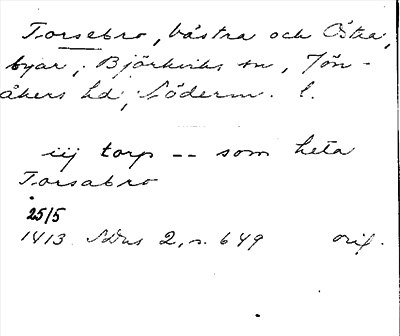 Torsebro, västra och Östra,
byar, Björkviks sn, Jön-
åkers hd, Söderm. l.
iij torp -- som heta
Torsabro
25/5
1413 SDns 2, s. 649 orig.